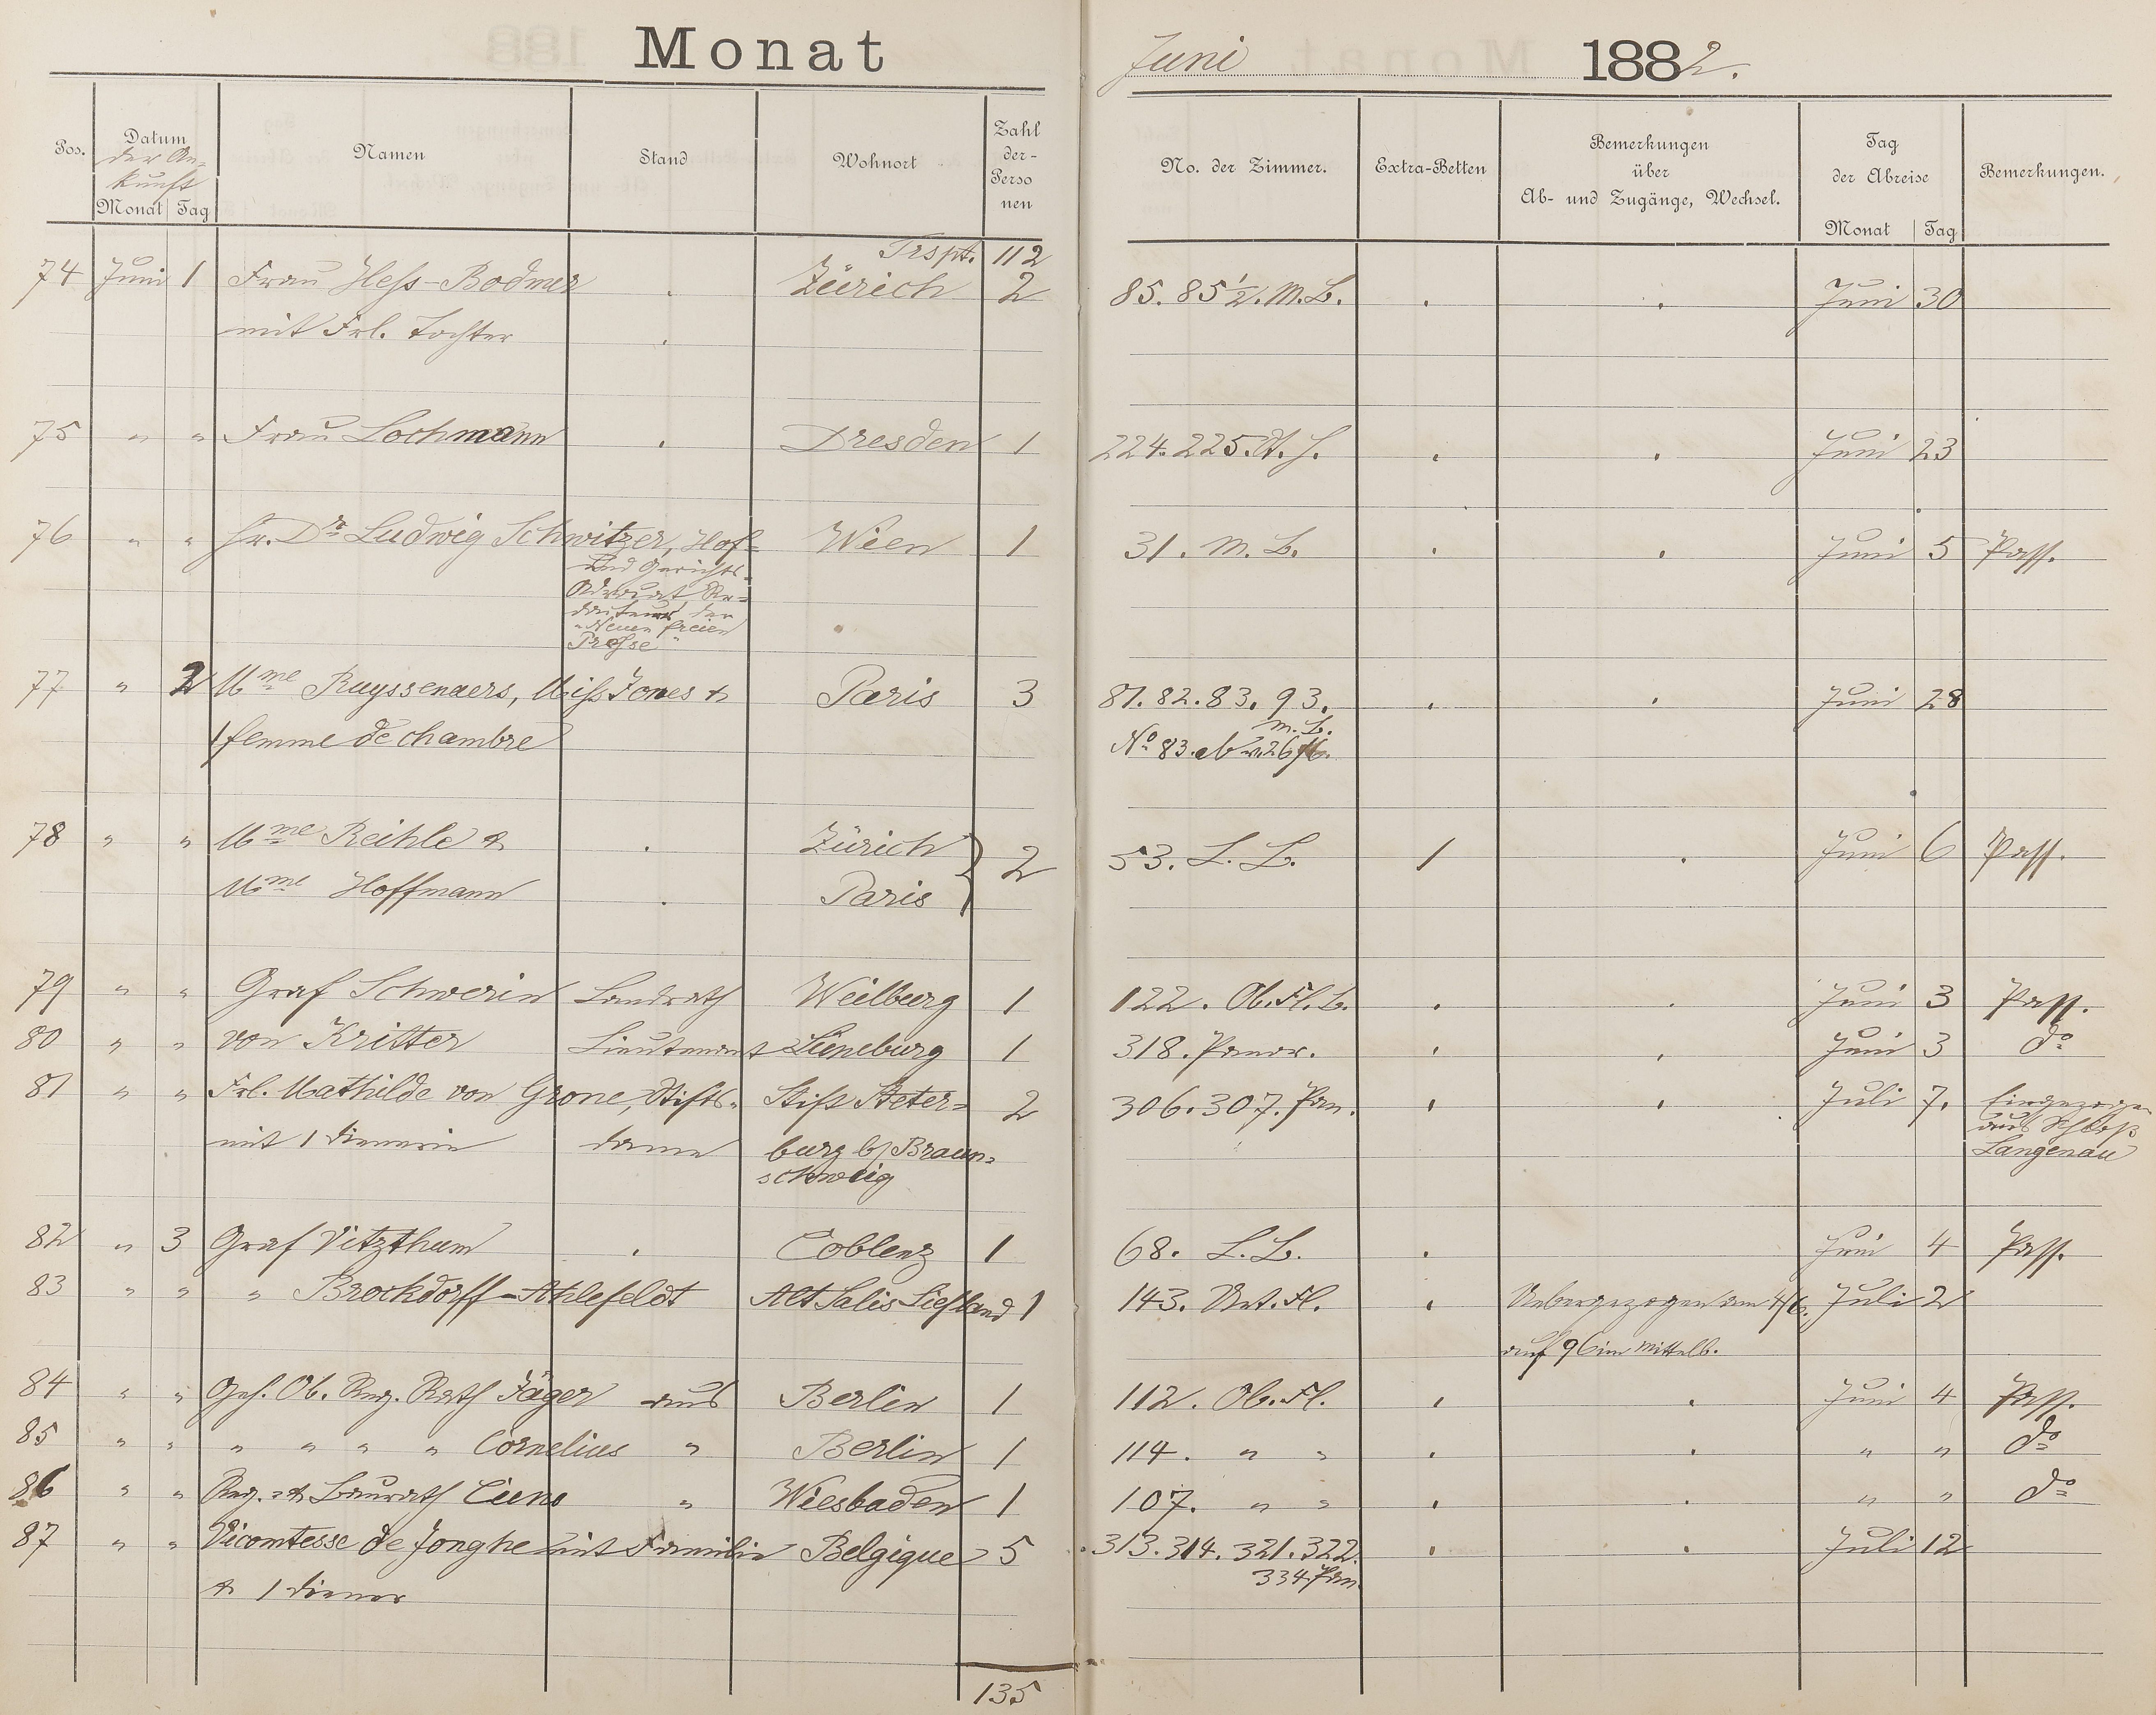 Monat Juni 1882.
Pos. Datum der Ankunft Monat Tag Namen Stand Wohnort Zahl der Personen No. der Zimmer. Extra-Betten Bemerkungen über Ab- und Zugänge, Wechsel. Tag der Abreise Monat Tag Bemerkungen.
Trspt. 112
74 Juni 1 Frau Hess-Bodmer . Zürich 2 85. 85½. M.B. . . Juni 30
mit Frl. Tochter .
75 " " Frau Lochmann . Dresden 1 224. 225. A. H. . . Juni 23
76 " " Hr. Dr Ludwig Schwitzer, Hof= Wien 1 31. M. B. . . Juni 5 Pass.
und Gerichts-
Advocat Re=
dacteur der
"Neuen freien
Presse"
77 " 2 Mme Ruyssenaers, Miss Jones & Paris 3 81. 82. 83. 93. . . Juni 28
M. B.
1 femme de chambre No 83. ab v. 26/6.
78 " " Mme Reihle & . Zürich 2 53. L. B. 1 . Juni 6 Pass.
Mme Hoffmann . Paris
79 " " Graf Schwerin Landrath Weilburg 1 122. Ob. Fl. B. . . Juni 3 Pass.
80 " " von Kritter Lieutenant Lüneburg 1 318. Panor. . . Juni 3 do
81 " " Frl. Mathilde von Grone, Stifts- Stift Steter= 2 306. 307. Pan. . . Juli 7. Eingezogen
aus Schloß
mit 1 Dienerin dame burg b/ Braun= Langenau
schweig
82 " 3 Graf Vitzthum . Coblenz 1 68. L. B. . Juni 4 Pass.
83 " " " Brockdorff-Ahlefeldt Alt Salis Liefland 1 143. Unt. Fl. . Uebergezogen am 4/6. Juli 2
auf 96 im Mittelb.
84 " " Geh. Ob. Reg. Rath Jäger aus Berlin 1 112. Ob. Fl. . . Juni 4 Pass.
85 " " " " " " Cornelius " Berlin 1 114. " " . . " " do
86 " " Reg. & Baurath Cuno " Wiesbaden 1 107. " " . . " " do
87 " " Vicomtesse de Jonghe mit Familie Belgique 5 313. 314. 321. 322. . . Juli 12
334 Pan.
& 1 Diener
135